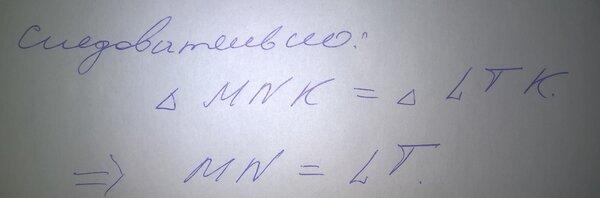 Следовательно:
△ MNK = △ LTK.
=> MN = LT.